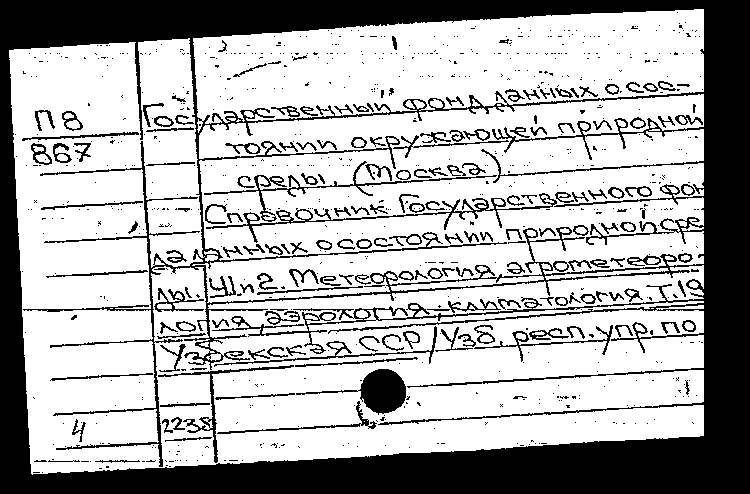 П8
867
Государственный фонд данных о сос-
тоянии окружающей природной
среды. (Москва).
Справочник Государственного фон
да данных о состоянии природной сре
ды. Ч1и2. Метеорология, агрометеоро-
логия, аэрология, климатология. Т.19
Узбекская ССР / Узб. респ. упр. по
4
2238